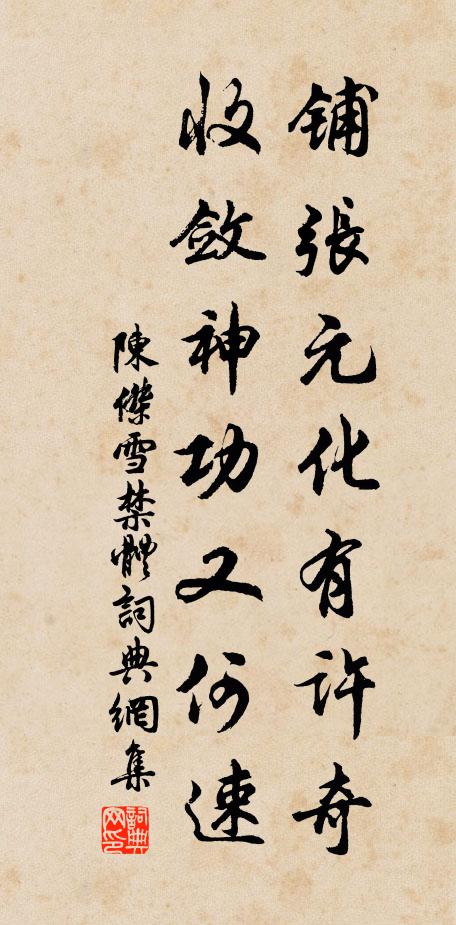 鋪張元化有許奇
收斂神功又何速
陳傑雪禁體詞典網集
詞典网印